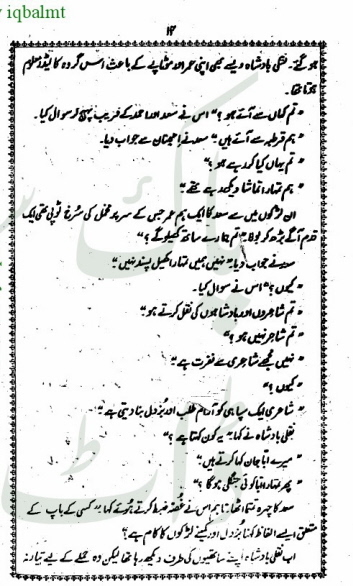 iqbalmt
۱۴
ہو گئے۔ نقلی بادشاہ ویسے بھی اپنی عمر اور موٹاپے کے باعث اس گروہ کا لیڈر معلوم
ہوتا تھا۔
"تم کہاں سے آئے ہو؟" اس نے سعد اور احمد کے قریب پہنچ کر سوال کیا۔
"ہم قرطبہ سے آئے ہیں" سعد نے اطمینان سے جواب دیا۔
"تم یہاں کیا کر رہے ہو؟"
"ہم تمہارا تماشا دیکھ رہے تھے"
ان لڑکوں میں سے سعد کا ایک ہم عمر جس کے سر پر مخمل کی سُرخ ٹوپی تھی ایک
قدم آگے بڑھ کر بولا "تم ہمارے ساتھ کھیلو گے؟"
سعد نے جواب دیا "نہیں ہمیں تمہارا کھیل پسند نہیں"
"کیوں؟" اس نے سوال کیا۔
"تم شاعروں اور بادشاہوں کی نقل کرتے ہو"
"تم شاعر نہیں ہو؟
"نہیں مجھے شاعری سے نفرت ہے"
"کیوں؟"
"شاعری ایک سپاہی کو آرام طلب اور بُزدل بنا دیتی ہے"
نقلی بادشاہ نے کہا "یہ کون کہتا ہے؟"
"میرے ابا جان کہا کرتے ہیں"
"پھر تمہارا ابا کوئی جنگلی ہو گا؟"
سعد کا چہرہ تمتما اٹھا تاہم اس نے غُصّہ ضبط کرتے ہوئے کہا "کسی کے باپ کے
متعلق ایسے الفاظ کہنا بُزدل اور کمینے لڑکوں کا کام ہے؟
اب نقلی بادشاہ اپنے ساتھیوں کی طرف دیکھ رہا تھا لیکن وہ حملے کے لیے تیار نہ